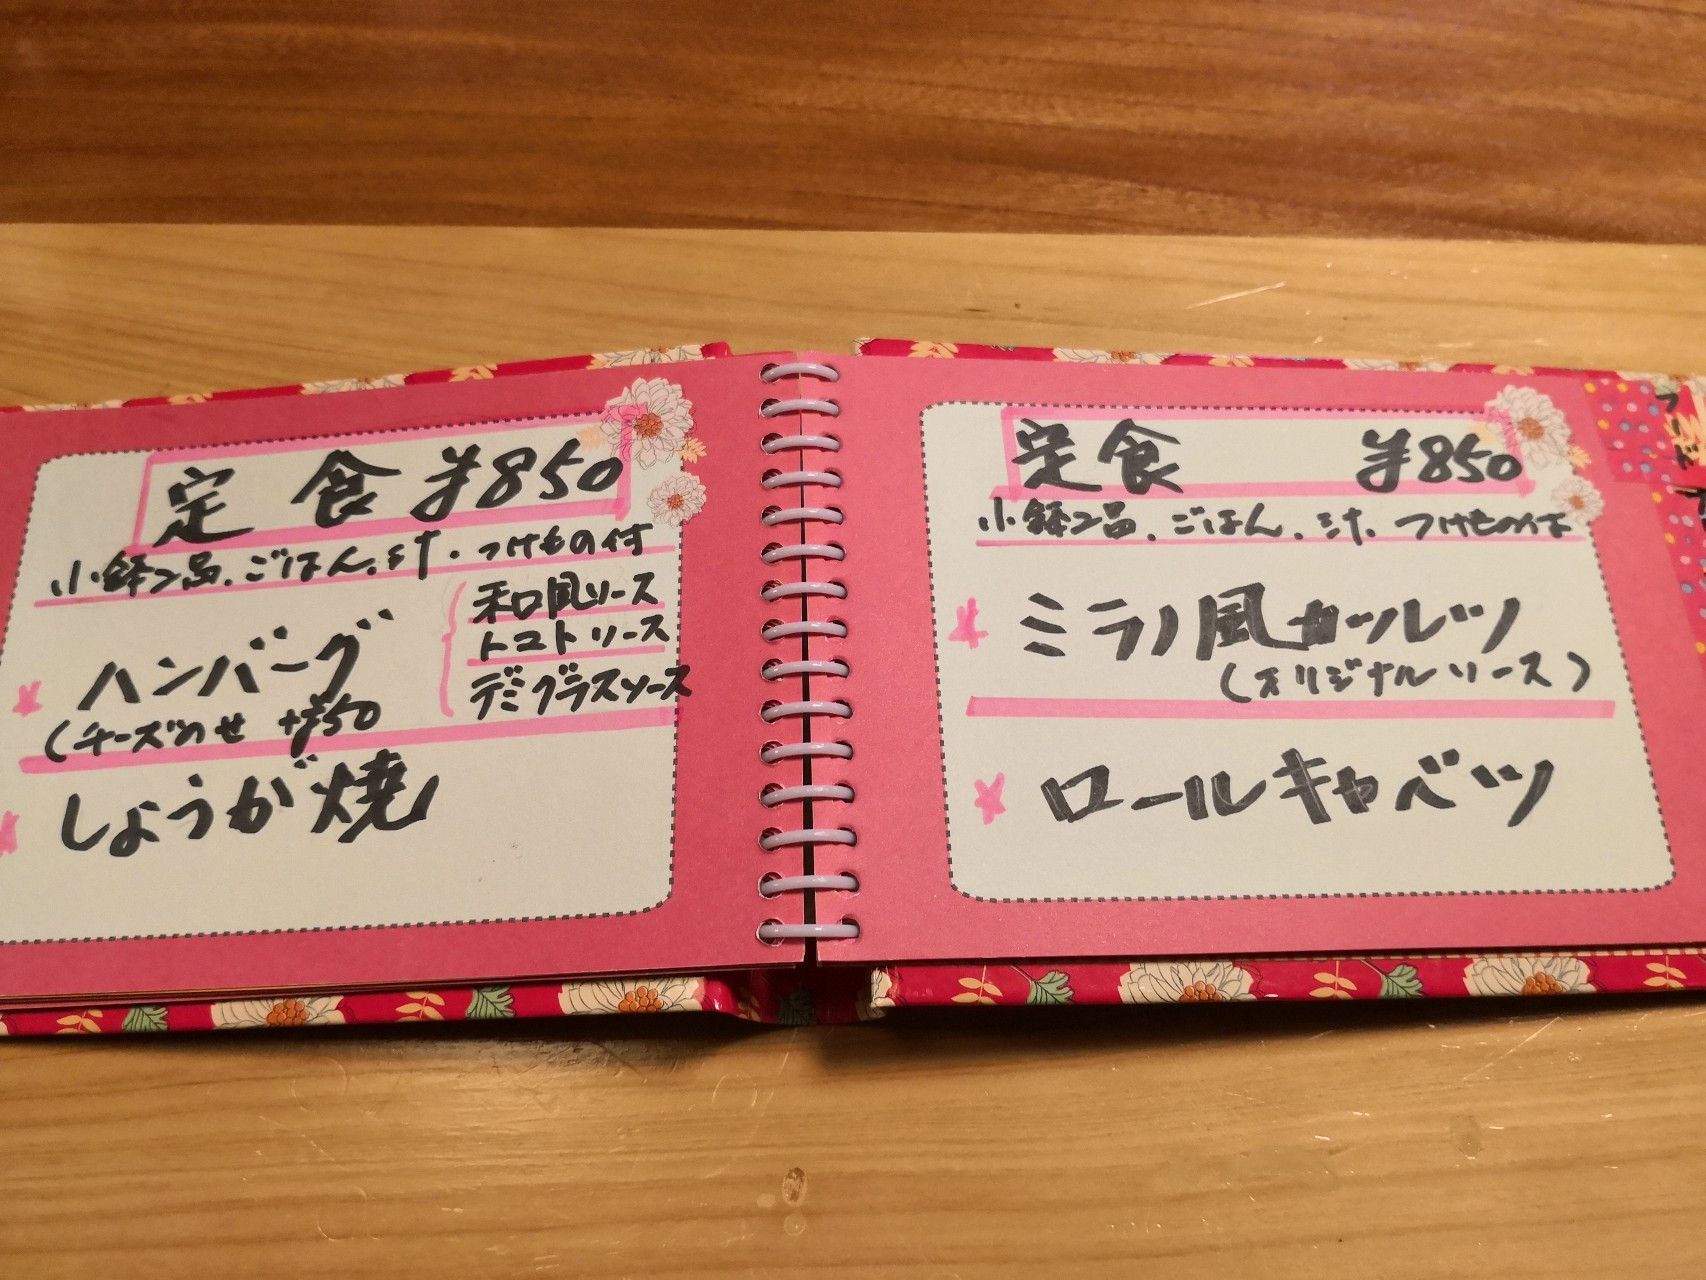 定食 ¥850
小鉢2品、ごはん、汁、つけもの付
ハンバーグ
(チーズのせ +¥50
和風ソース
トマトソース
デミグラスソース
しょうが焼
定食 ¥850
小鉢2品、ごはん、汁、つけもの付
ミラノ風カツレツ
(オリジナルソース)
ロールキャベツ